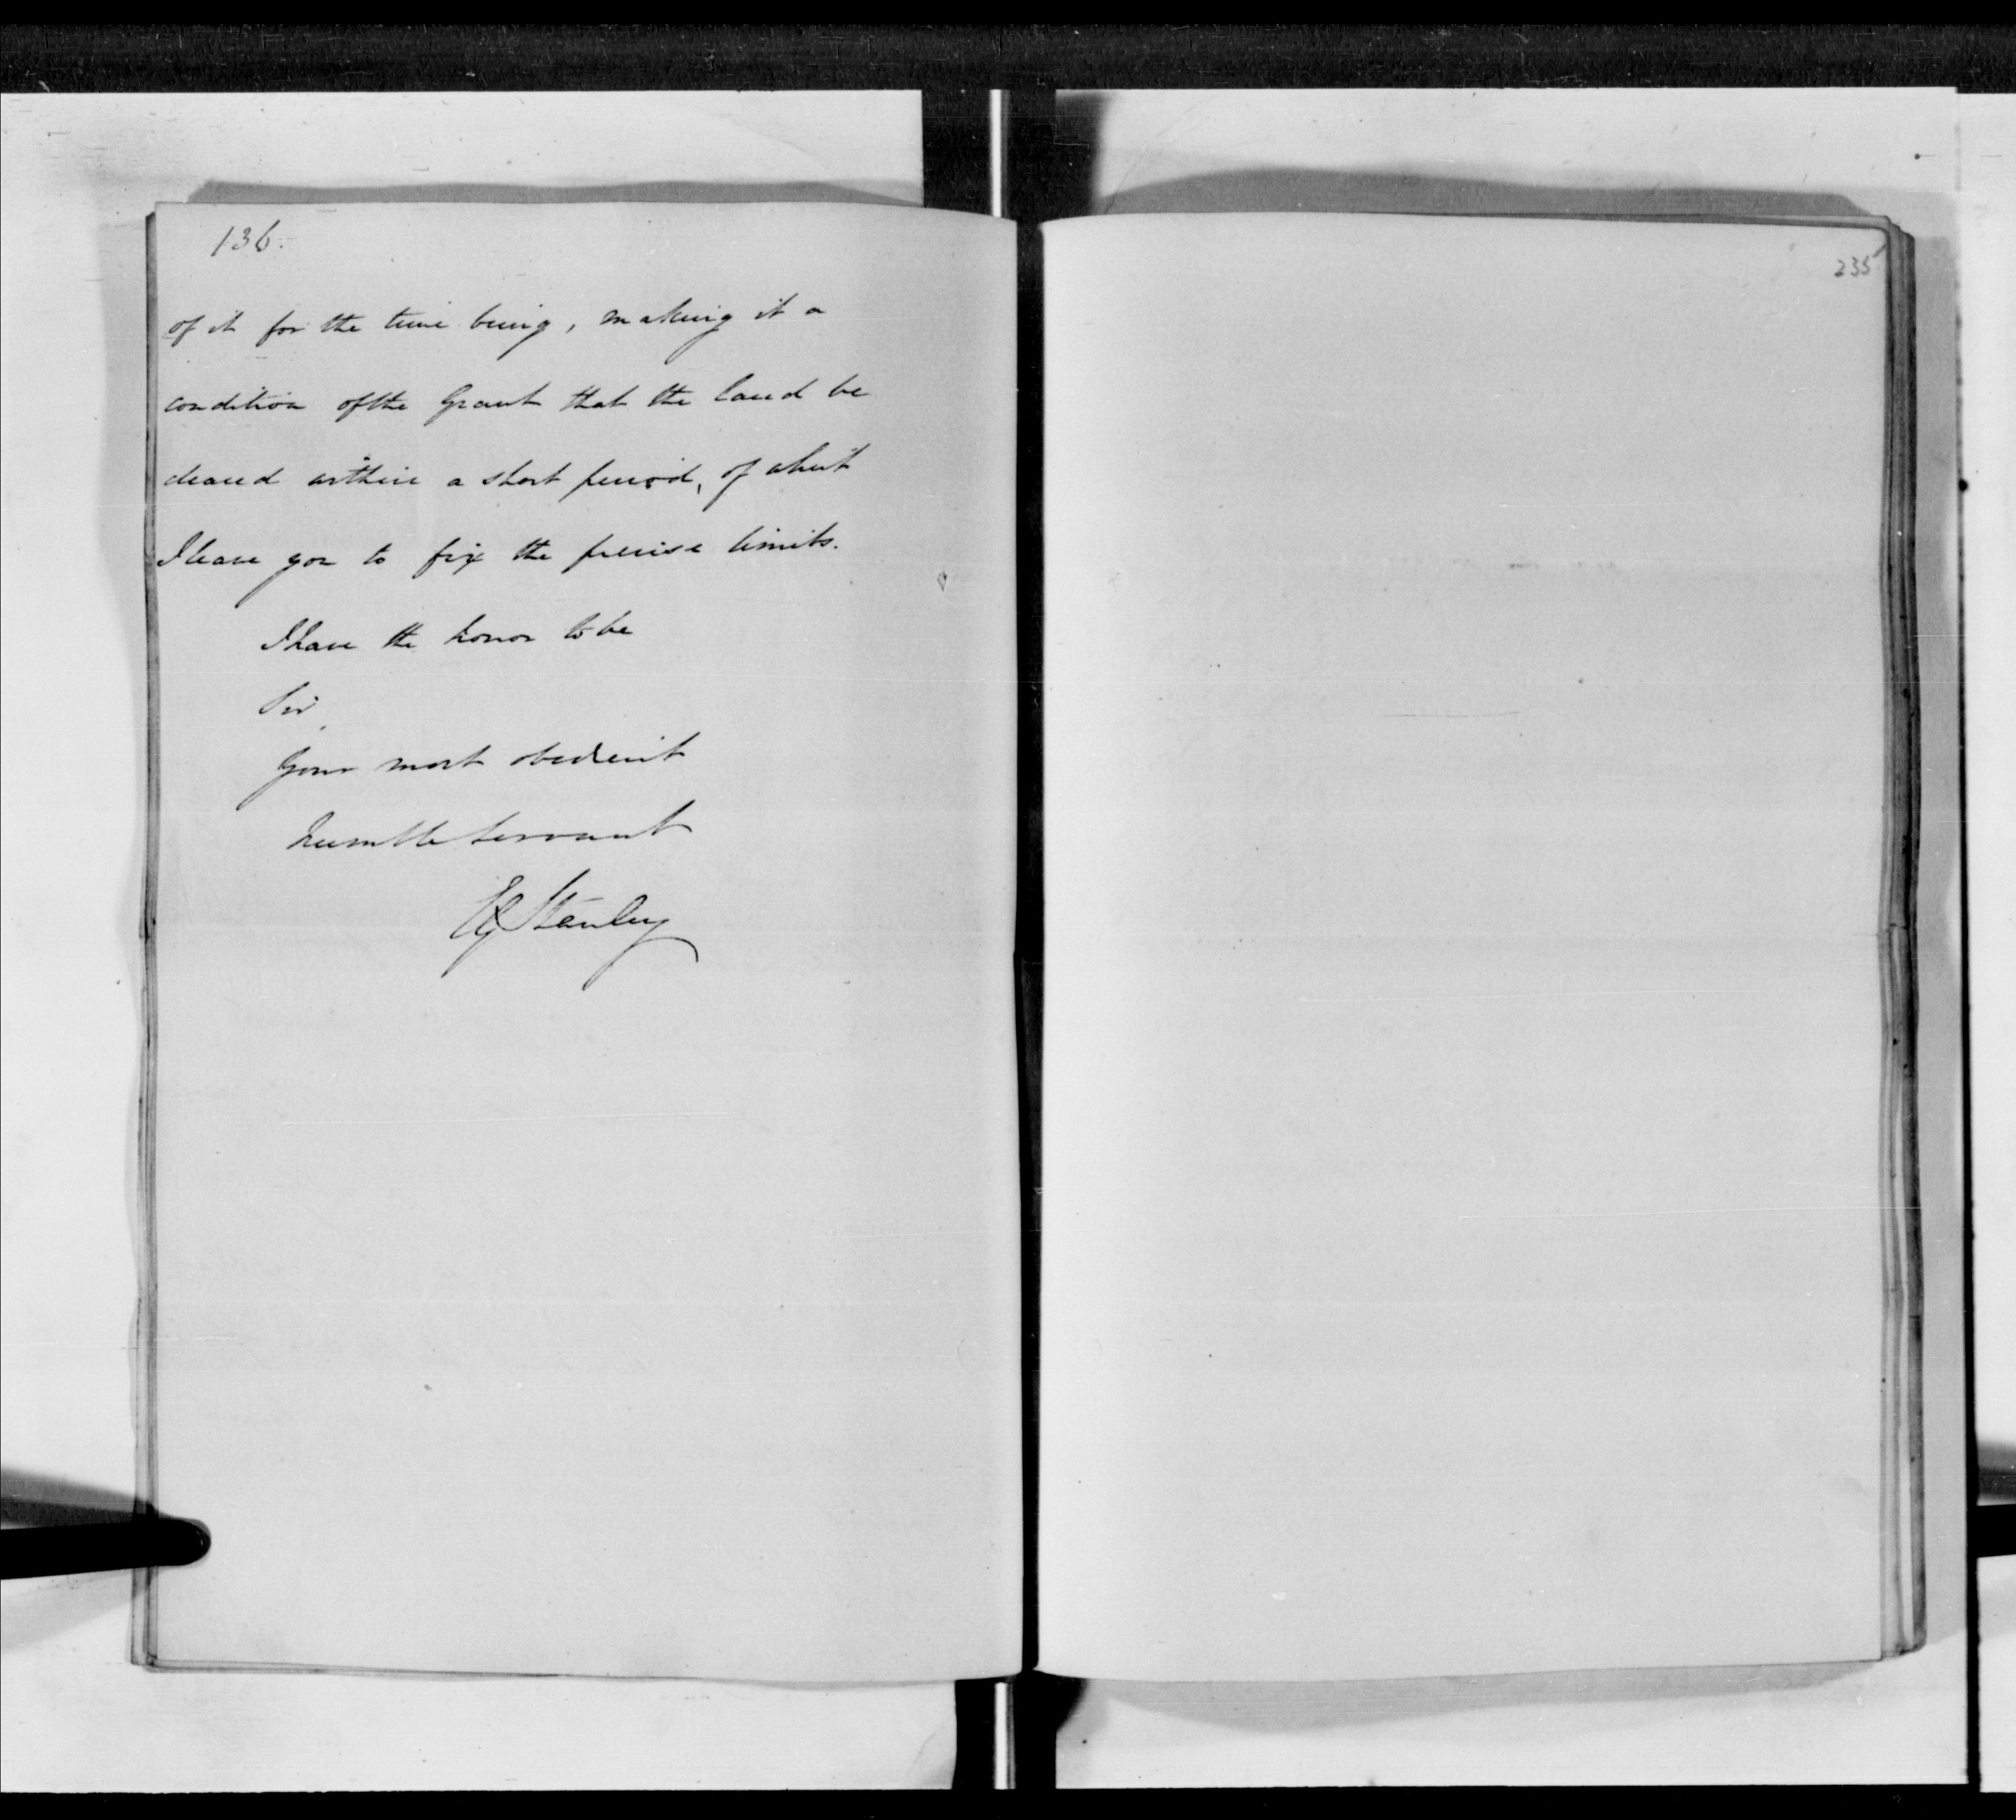 136.
of it for the time being, making it a
condition of the Grant that the land be
cleared within a short period, of which
I leave you to fix the precise limits.
I have the honor to be
Sir
Your most obedient
humble servant
Stanley
235